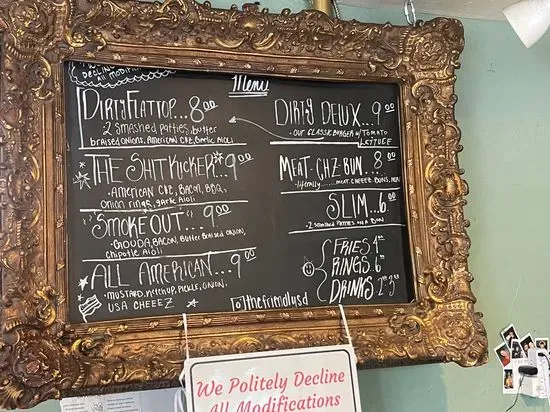 DECLINE
All Modifi
Menu
DIRTY FLAT TOP... 8 00
2 Smashed patties, butter
braised onions, American CHZ, Garlic Aioli
THE SHIT KICKER 9 00
- AMERICAN CHZ, BACON, BBQ,
Onion rings, garlic aioli
"SMOKE OUT"... 9 00
- GOUDA, BACON, Butter Braised ONION,
chipotle Aioli
ALL AMERICAN... 9
- MUSTARD, Ketchup, PICKLE, ONION,
USA CHEEZ
DIRTY DELUX... 9 00
- OUR CLASSIC BURGER w/ TOMATO
LETTUCE
MEAT-CHZ-BUN... 8 00
- literally...... MEAT, CHEEZ, BUNS,
SLIM... 6 00
- 2 Smashed Patties on a BUN
FRIES 4
RINGS 6
DRINKS
@thefriendlysd
We Politely Decline
All Modifications